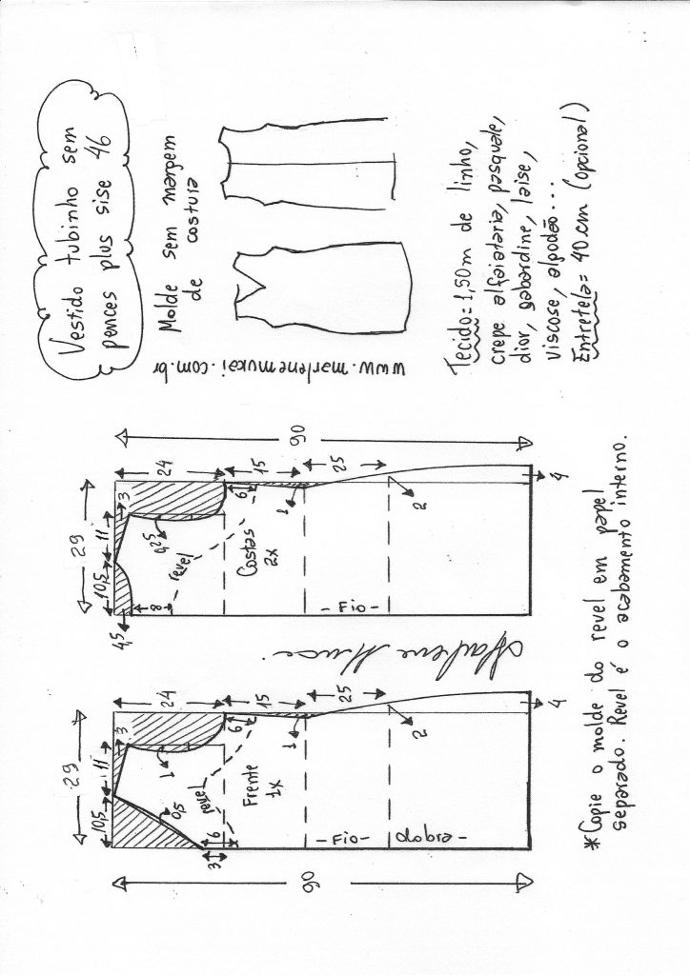 Vestido tubinho sem
pences plus sise 46
Molde sem margem
de costura
www.marlenemukai.com.br
Tecido=1,50m de linho,
crepe alfaiataria, pasquale,
dior, gabardine, laise,
viscose, algodão...
Entretela= 40cm (opcional)
90
24
15
25
29
10,5
11
3
0,25
6
1
revel
Costas
2x
4,5
8
- Fio -
2
4
Marlene Mukai
24
15
25
29
10,5
11
3
1
0,5
6
1
revel
Frente
1x
3
6
- Fio -
dobra -
2
4
90
*Copie o molde do revel em papel
separado. Revel é o acabamento interno.